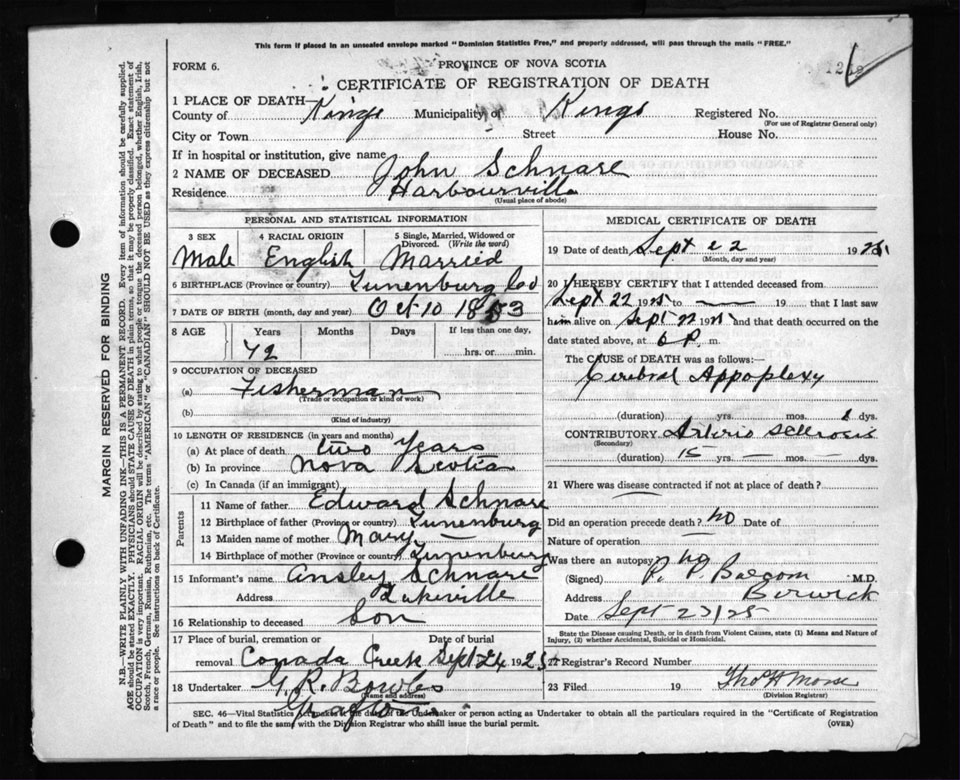 This form if placed in an unsealed envelope marked "Dominion Statistics Free," and properly addressed, will pass through the mails "FREE."
FORM 6.
PROVINCE OF NOVA SCOTIA
CERTIFICATE OF REGISTRATION OF DEATH
1 PLACE OF DEATH—
County of Kings Municipality of Kings Registered No.
(For use of Registrar General only)
City or Town Street House No.
If in hospital or institution, give name
2 NAME OF DECEASED John Schnare
Residence Harbourville
(Usual place of abode)
PERSONAL AND STATISTICAL INFORMATION
3 SEX 4 RACIAL ORIGIN 5 Single, Married, Widowed or Divorced. (Write the word)
Male English Married
6 BIRTHPLACE (Province or country) Lunenburg Co
7 DATE OF BIRTH (month, day and year) Oct 10 1853
8 AGE Years Months Days If less than one day,
72 hrs. or min.
9 OCCUPATION OF DECEASED
(a) Fisherman
(Trade or occupation or kind of work)
(b)
(Kind of industry)
10 LENGTH OF RESIDENCE (in years and months)
(a) At place of death two Years
(b) In province Nova Scotia
(c) In Canada (if an immigrant)
Parents
11 Name of father Edward Schnare
12 Birthplace of father (Province or country) Lunenburg
13 Maiden name of mother Mary —
14 Birthplace of mother (Province or country) Lunenburg
15 Informant's name Ansley Schnare
Address Lakeville
16 Relationship to deceased Son
17 Place of burial, cremation or removal Date of burial
Canada Creek Sept 24 1925
18 Undertaker G. R. Bowles
(Name and address)
Grafton
MEDICAL CERTIFICATE OF DEATH
19 Date of death Sept 22 1925
(Month, day and year)
20 I HEREBY CERTIFY that I attended deceased from
Sept 22 1925 to — 19 that I last saw
him alive on Sept 22 1925 and that death occurred on the
date stated above, at 6 P. m.
The CAUSE OF DEATH was as follows:
Cerebral Appoplexy
(duration) yrs. mos. 1 dys.
CONTRIBUTORY Arterio sclerosis
(Secondary)
(duration) 15 yrs. — mos. — dys.
21 Where was disease contracted if not at place of death?
Did an operation precede death? No Date of
Nature of operation —
Was there an autopsy? No
(Signed) P. P. Balcom M.D.
Address Berwick
Date Sept 23/25
State the Disease causing Death, or in death from Violent Causes, state (1) Means and Nature of Injury, (2) whether Accidental, Suicidal or Homicidal.
22 Registrar's Record Number
23 Filed 19 Thos H Morse
(Division Registrar)
SEC. 46—Vital Statistics Act makes it the duty of the Undertaker or person acting as Undertaker to obtain all the particulars required in the "Certificate of Registration
of Death" and to file the same with the Division Registrar who shall issue the burial permit. (OVER)
MARGIN RESERVED FOR BINDING
N.B.—WRITE PLAINLY WITH UNFADING INK—THIS IS A PERMANENT RECORD. Every item of information should be carefully supplied.
AGE should be stated EXACTLY. PHYSICIANS should STATE CAUSE OF DEATH in plain terms, so that it may be properly classified. Exact statement of
OCCUPATION is very important. RACIAL ORIGIN will be described by stating to what people or tongue the deceased person belonged, whether English, Irish,
Scotch, French, German, Russian, Ruthenian, etc. The terms "AMERICAN" or "CANADIAN" SHOULD NOT BE USED as they express citizenship but not
a race or people. See instructions on back of Certificate.